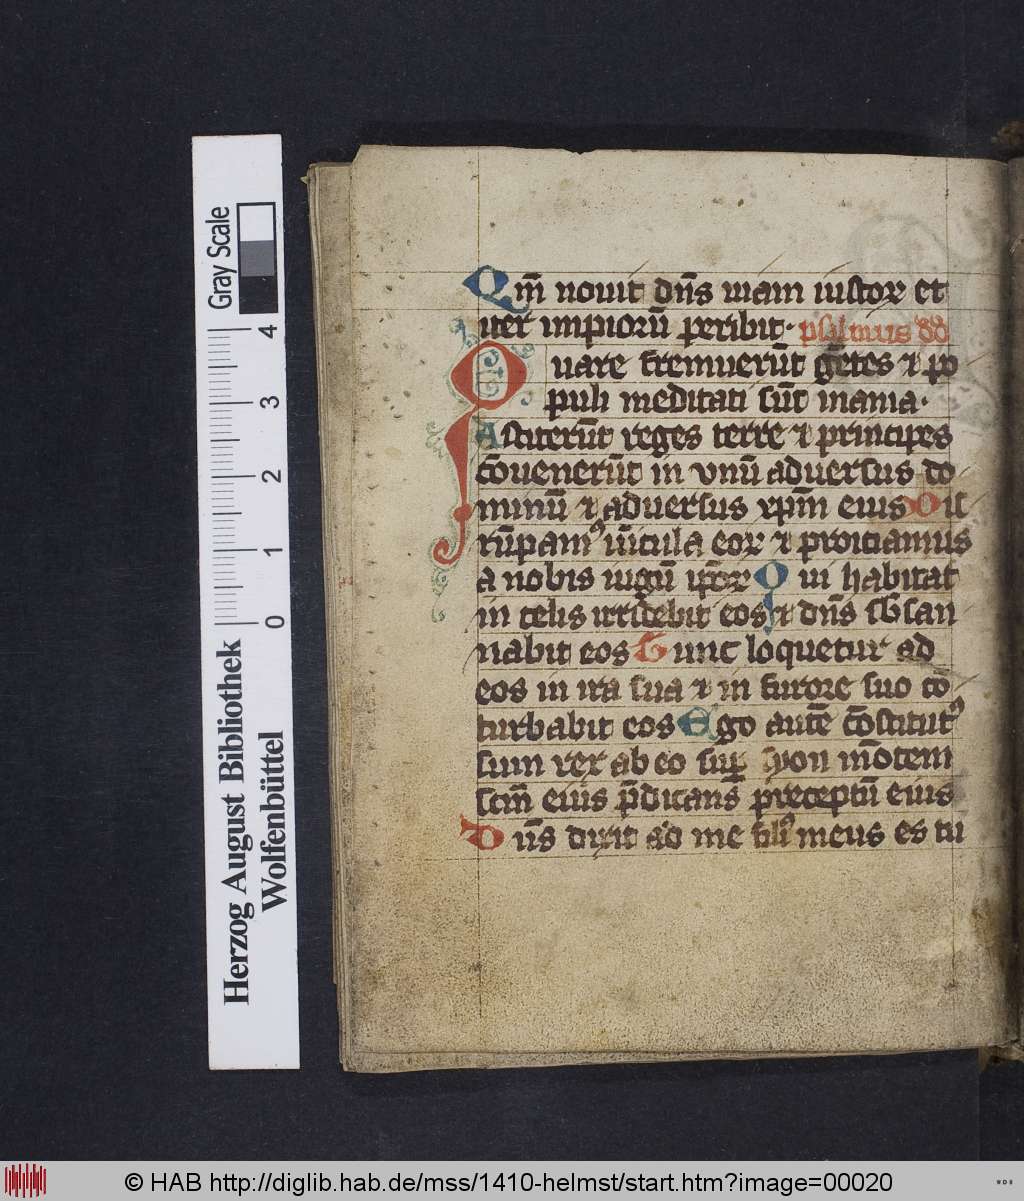 Gray Scale
4
3
2
1
0
Herzog August Bibliothek
Wolfenbüttel
Qm̄ novit dn̄s uiam iustoꝝ et
iter impiorū peribit· psalmus dd
Quare fremuerūt gētes ⁊ po
puli meditati sūt inania·
Astiterūt reges terre ⁊ principes
cōuenerūt in vnū aduersus do
minū ⁊ aduersus xpm̄ eius Dis
rūpamꝰ uīcula eoꝝ ⁊ proiciamus
a nobis iugū ip̄oꝝ Qui habitat
in celis irridebit eos ⁊ dn̄s sb̄san
nabit eos Tunc loquetur ad
eos in ira sua ⁊ in furore suo cō
turbabit eos Ego autē cōstitutꝰ
sum rex ab eo sup̄ syon mōtem
scm̄ eius p̄dicans preceptū eius
Dn̄s dixit ad me filiꝰ meus es tu
© HAB http://diglib.hab.de/mss/1410-helmst/start.htm?image=00020